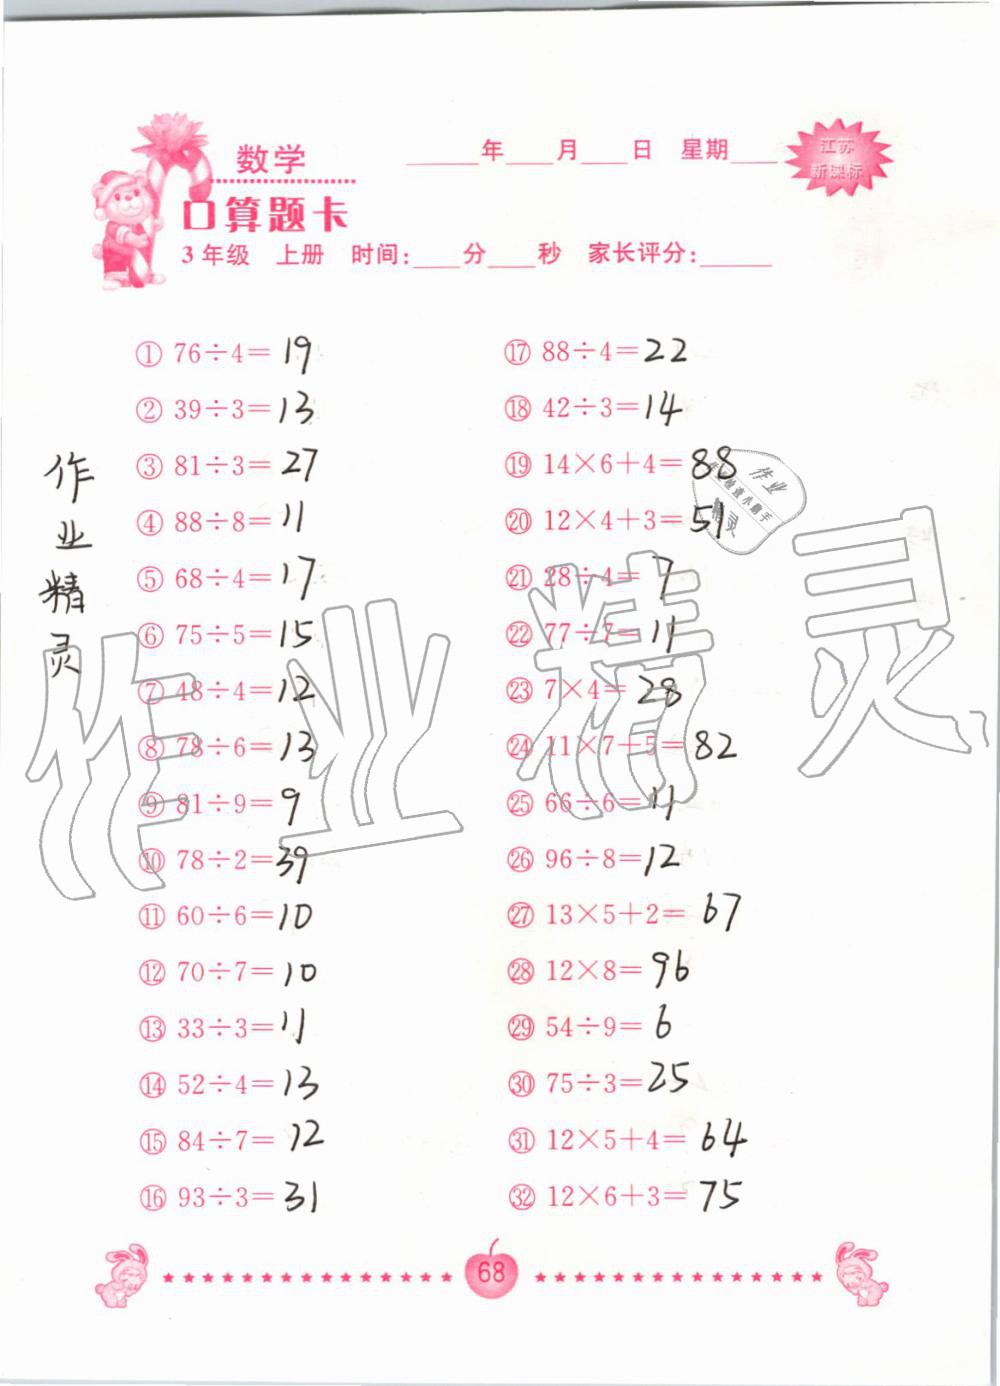 数学
____年___月___日 星期___
江苏
新课标
口算题卡
3年级 上册 时间:___分___秒 家长评分:____
① 76÷4=19
② 39÷3=13
③ 81÷3=27
④ 88÷8=11
⑤ 68÷4=17
⑥ 75÷5=15
⑦ 48÷4=12
⑧ 78÷6=13
⑨ 81÷9=9
⑩ 78÷2=39
⑪ 60÷6=10
⑫ 70÷7=10
⑬ 33÷3=11
⑭ 52÷4=13
⑮ 84÷7=12
⑯ 93÷3=31
⑰ 88÷4=22
⑱ 42÷3=14
⑲ 14×6+4=88
⑳ 12×4+3=51
㉑ 28÷4=7
㉒ 77÷7=11
㉓ 7×4=28
㉔ 11×7+5=82
㉕ 66÷6=11
㉖ 96÷8=12
㉗ 13×5+2=67
㉘ 12×8=96
㉙ 54÷9=6
㉚ 75÷3=25
㉛ 12×5+4=64
㉜ 12×6+3=75
作业精灵
作业精灵
作业
检查小助手
精灵
68